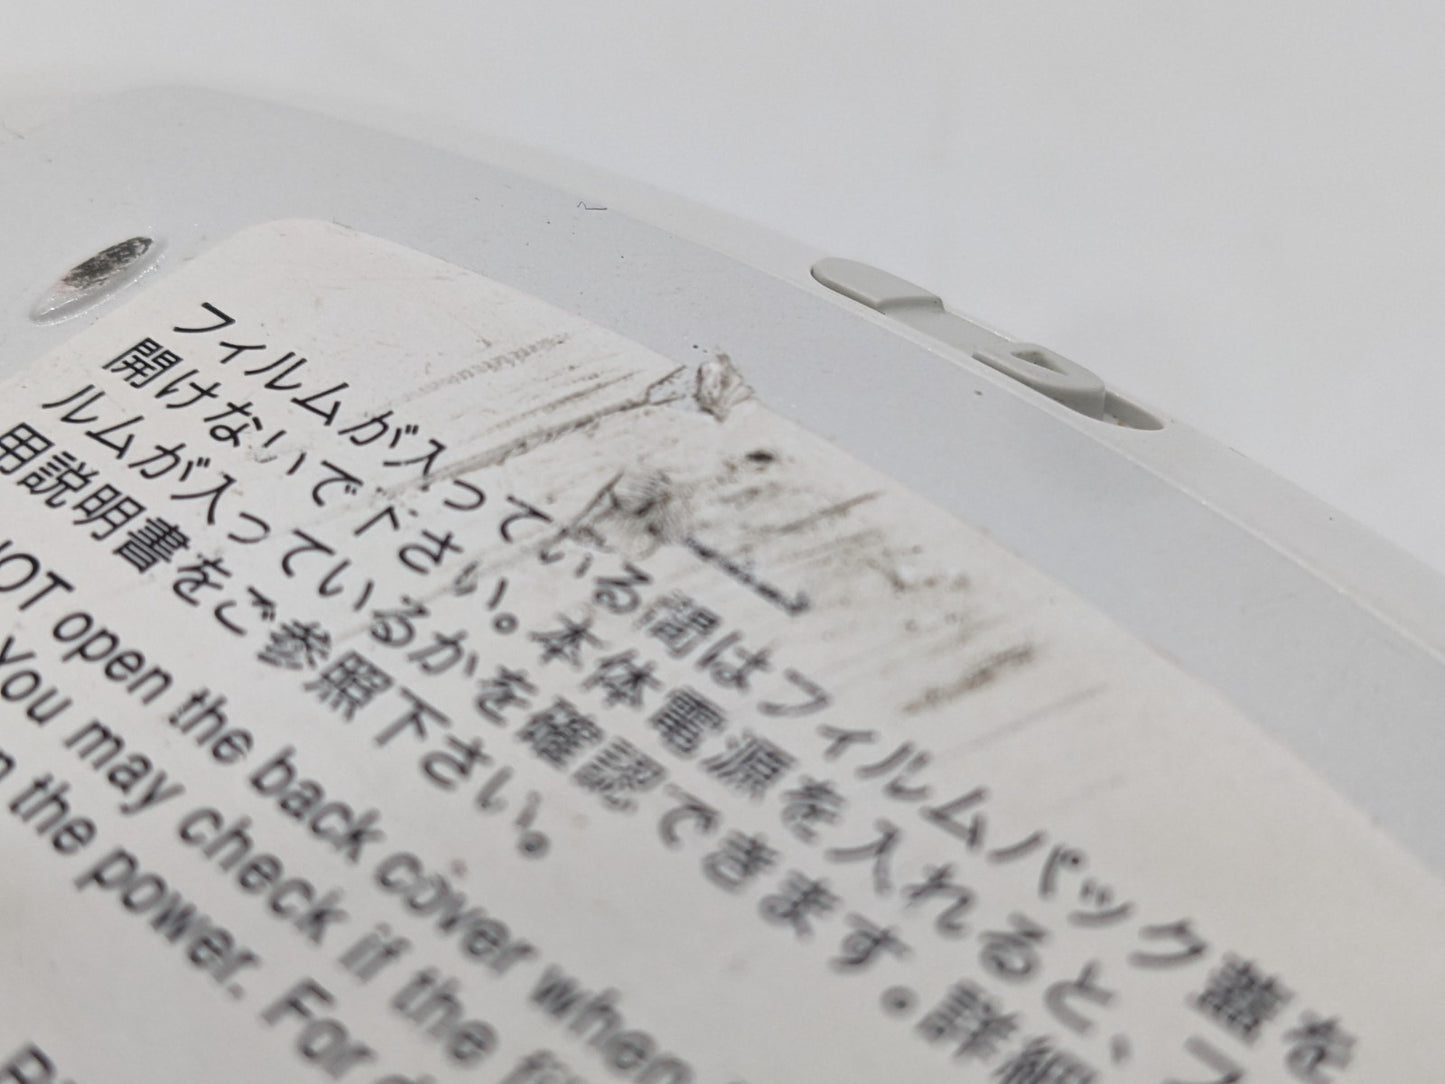 フィルムが入っている間はフィルムパック蓋を
開けないで下さい。本体電源を入れると、フ
ルムが入っているかを確認できます。詳細
用説明書をご参照下さい。
NOT open the back cover when
you may check if the
the power. For